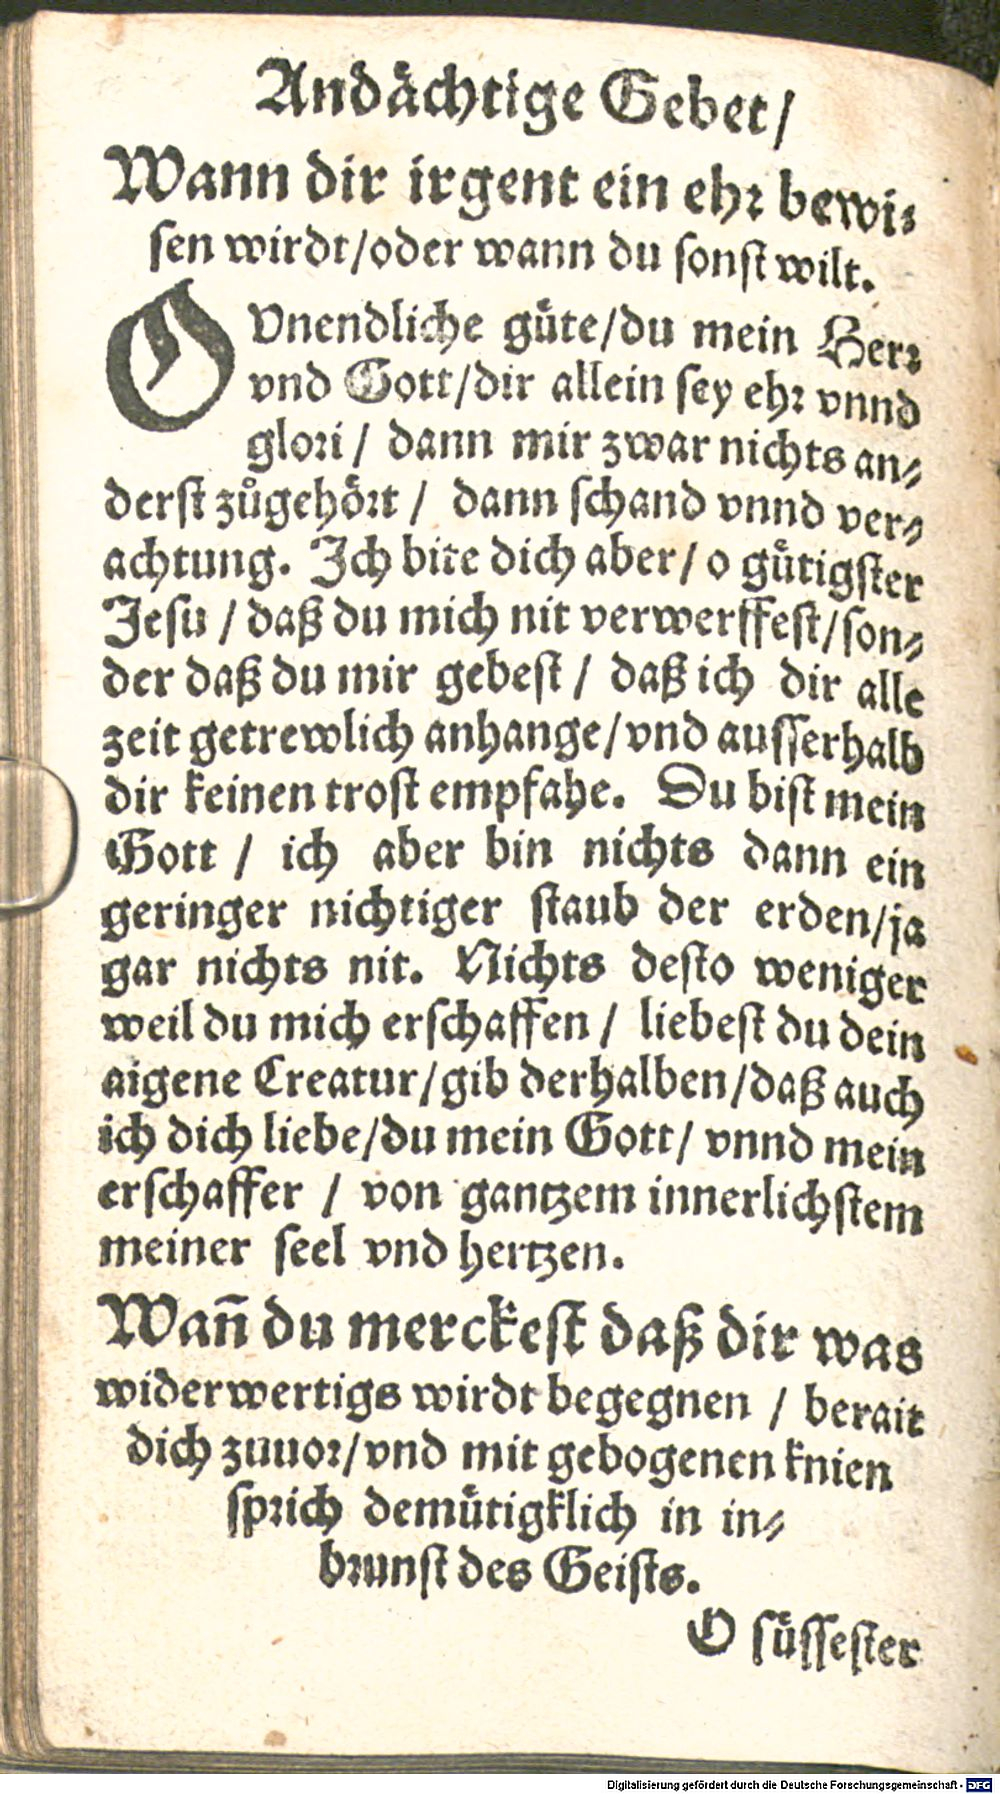 Andaͤchtige Gebet/
Wann dir irgent ein ehr bewi⸗
ſen wirdt/oder wann du ſonſt wilt.
O Vnendliche guͤte/du mein Herr
vnd Gott/dir allein ſey ehr vnnd
glori/ dann mir zwar nichts an⸗
derſt zuͦgehoͤrt / dann ſchand vnnd ver⸗
achtung. Ich bite dich aber/ o guͤtigſter
Jeſu / daß du mich nit verwerffeſt/ſon⸗
der daß du mir gebeſt / daß ich dir alle
zeit getrewlich anhange/vnd auſſerhalb
dir keinen troſt empfahe. Du biſt mein
Gott / ich aber bin nichts dann ein
geringer nichtiger ſtaub der erden/ja
gar nichts nit. Nichts deſto weniger
weil du mich erſchaffen / liebeſt du dein
aigene Creatur/gib derhalben/daß auch
ich dich liebe/du mein Gott/ vnnd mein
erſchaffer / von gantzem innerlichſtem
meiner ſeel vnd hertzen.
Wañ du merckeſt daß dir was
widerwertigs wirdt begegnen / berait
dich zuuor/vnd mit gebogenen knien
ſprich demuͤtigklich in in⸗
brunſt des Geiſts.
O ſuͤſſeſter
Digitalisierung gefördert durch die Deutsche Forschungsgemeinschaft - DFG